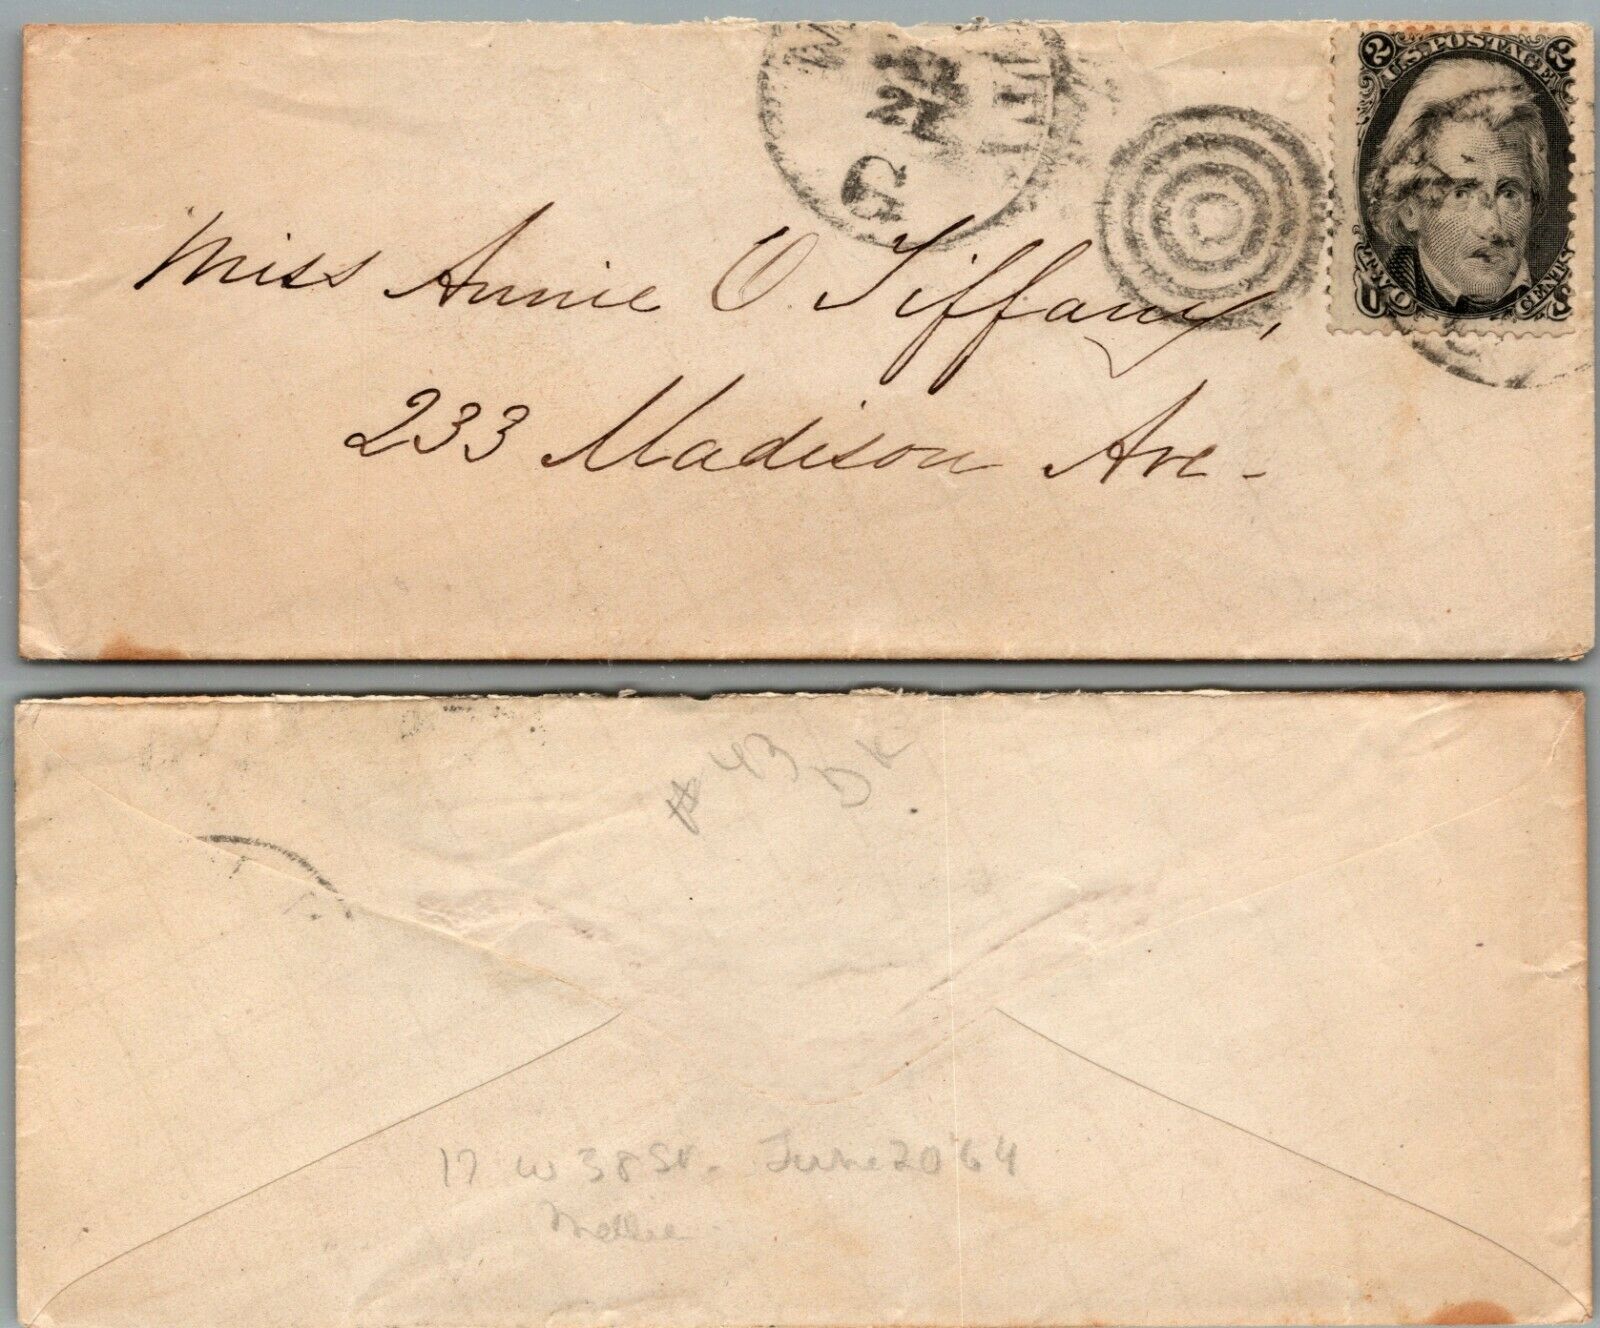 2 U.S. POSTAGE 2
TWO CENTS
U S
21
G
Miss Annie O. Tiffany,
233 Madison Ave -
# 43 DK
17 W 38 St. June 20 '64
Mollie